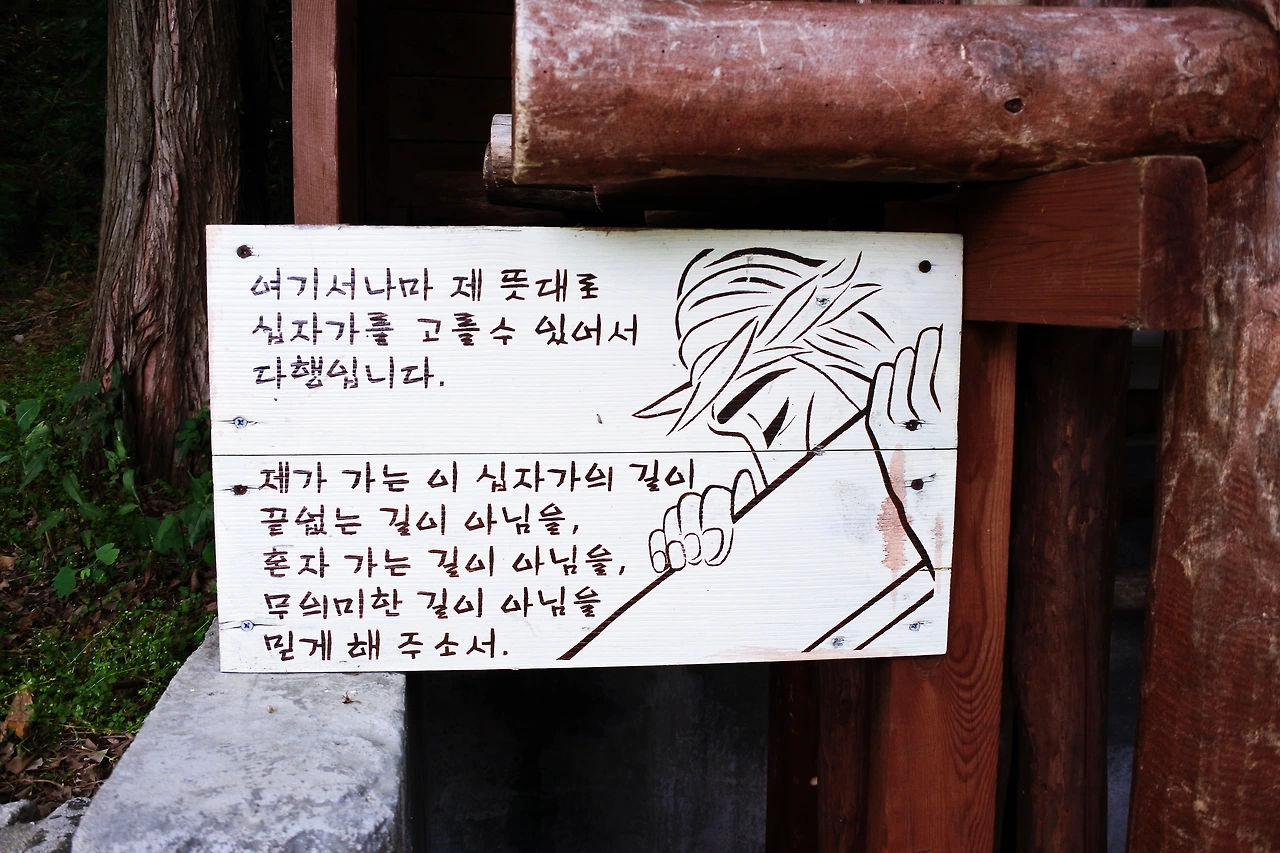 여기서나마 제 뜻대로
십자가를 고를수 있어서
다행입니다.
제가 가는 이 십자가의 길이
끝없는 길이 아님을,
혼자 가는 길이 아님을,
무의미한 길이 아님을
믿게 해 주소서.